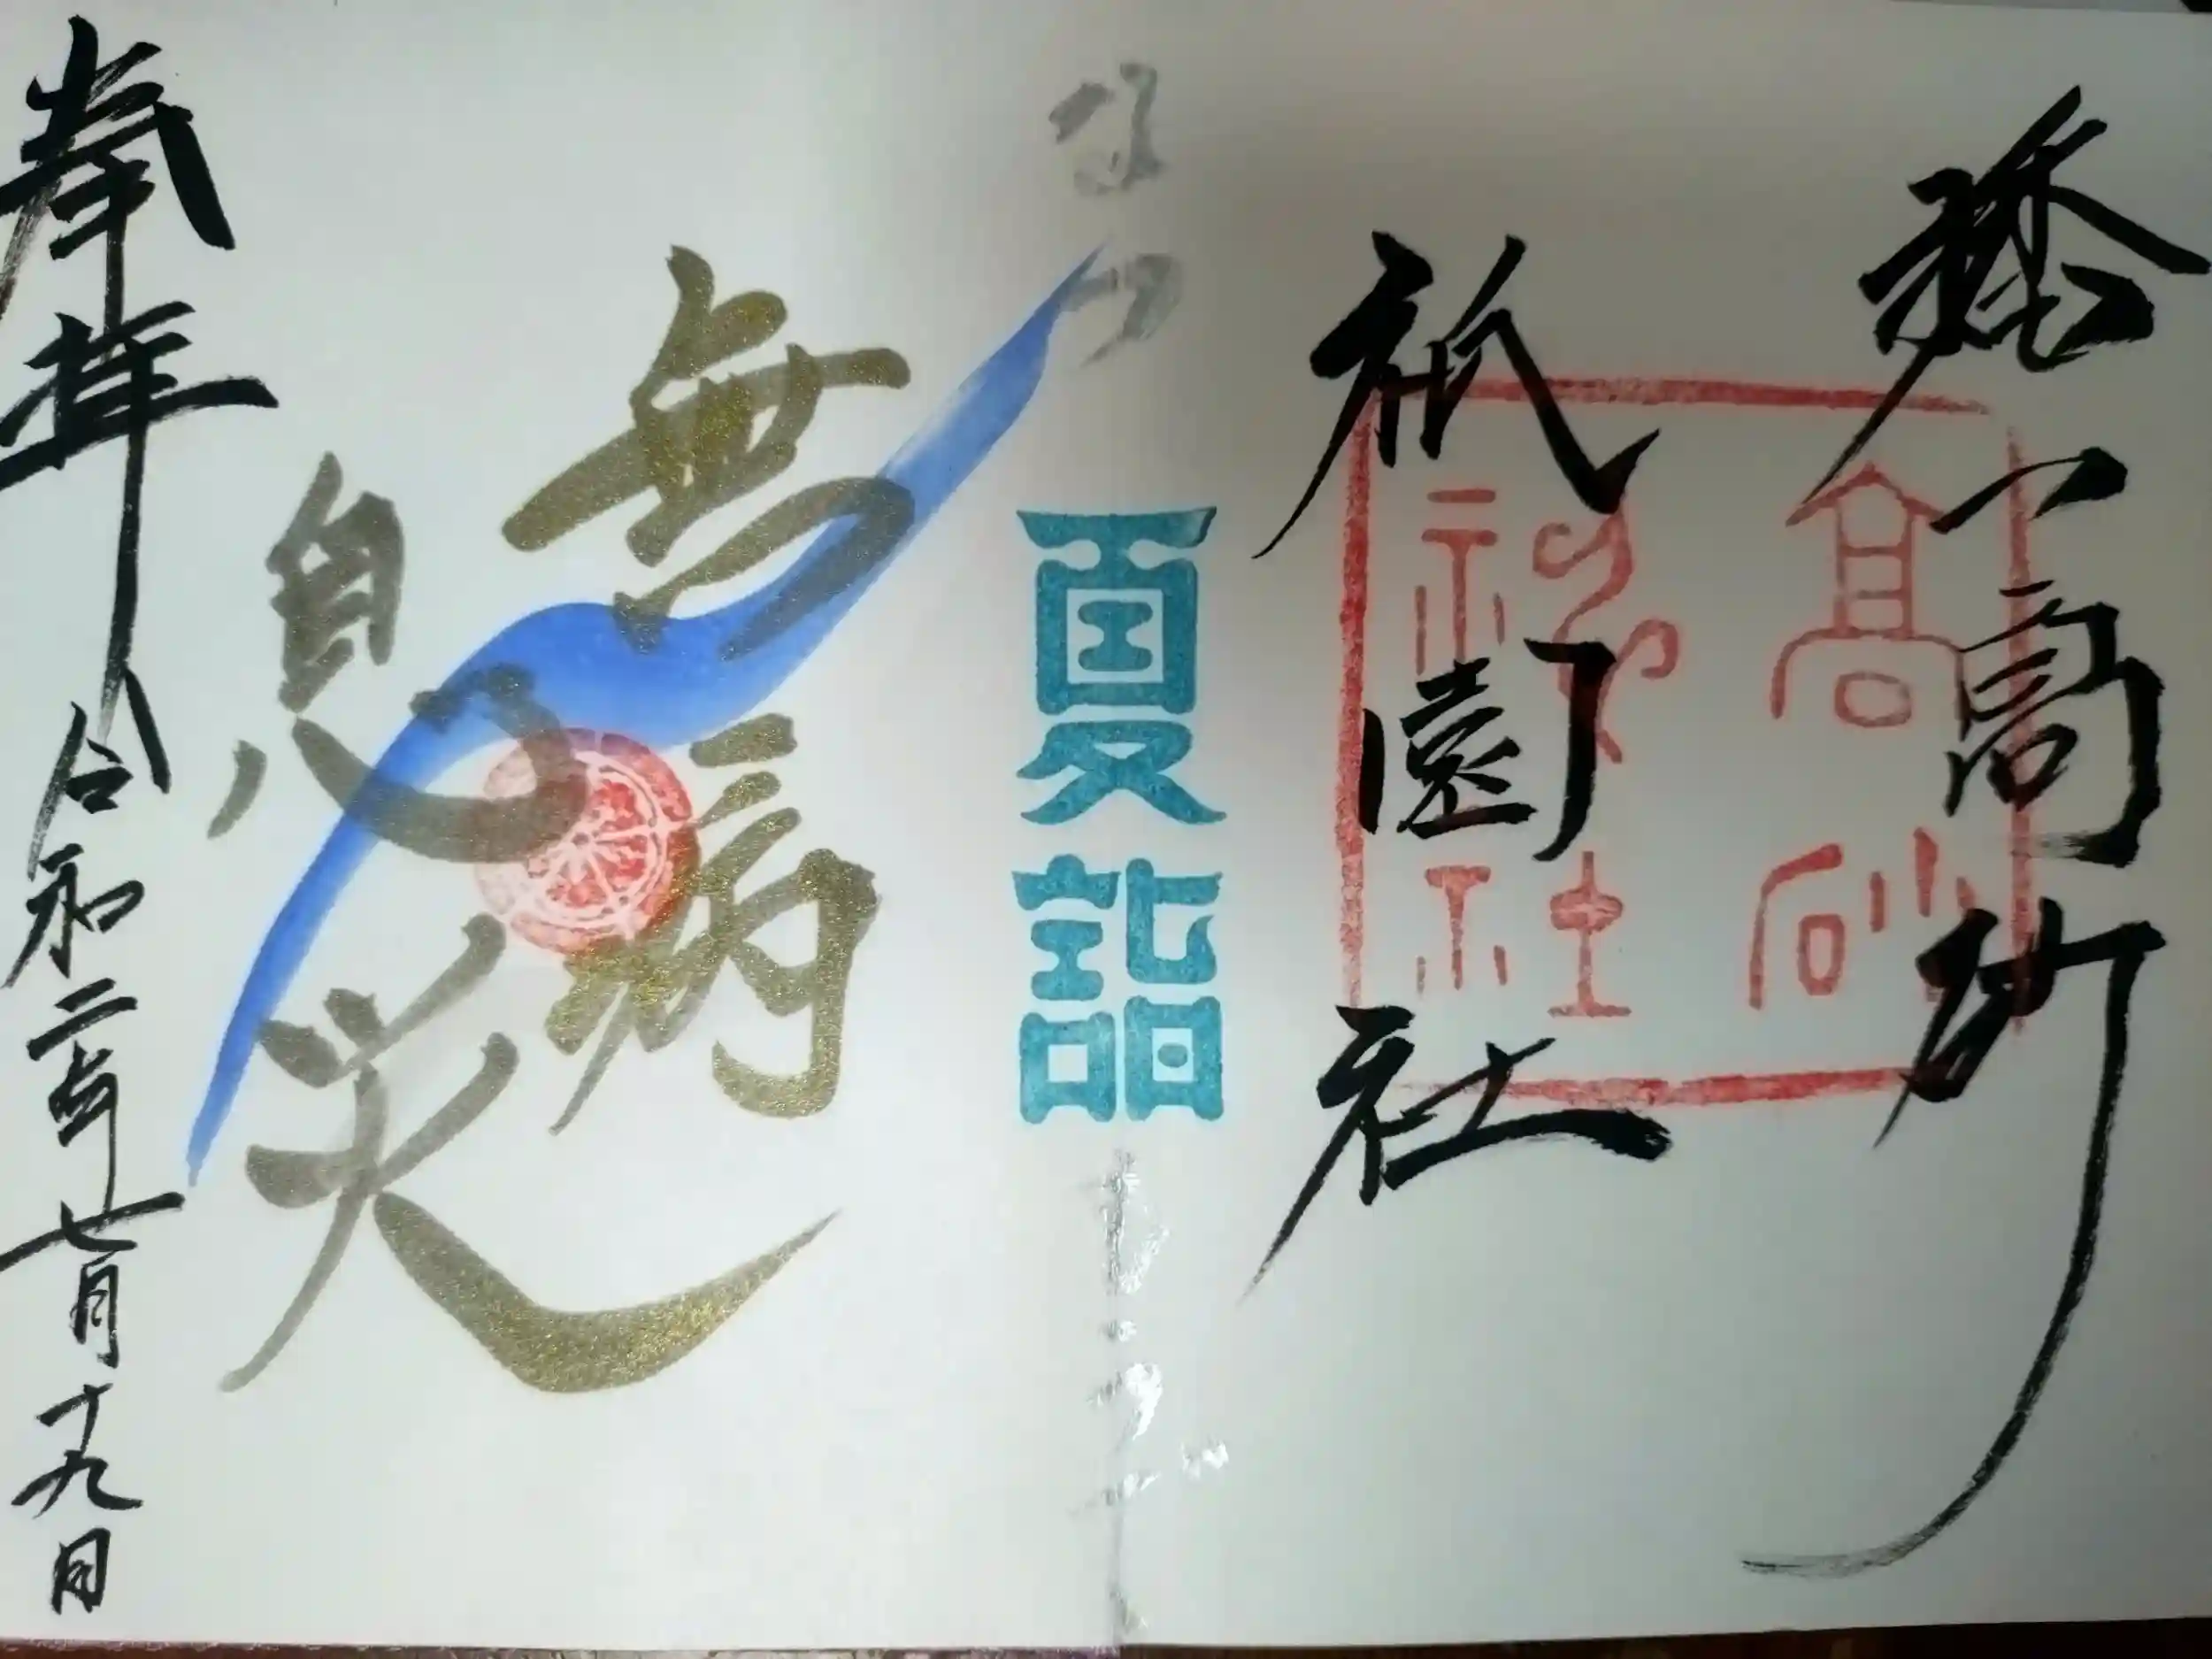 高砂
祇園社
高砂
神社
なつ
夏詣
無病
息災
奉拝
令和二年七月十九日